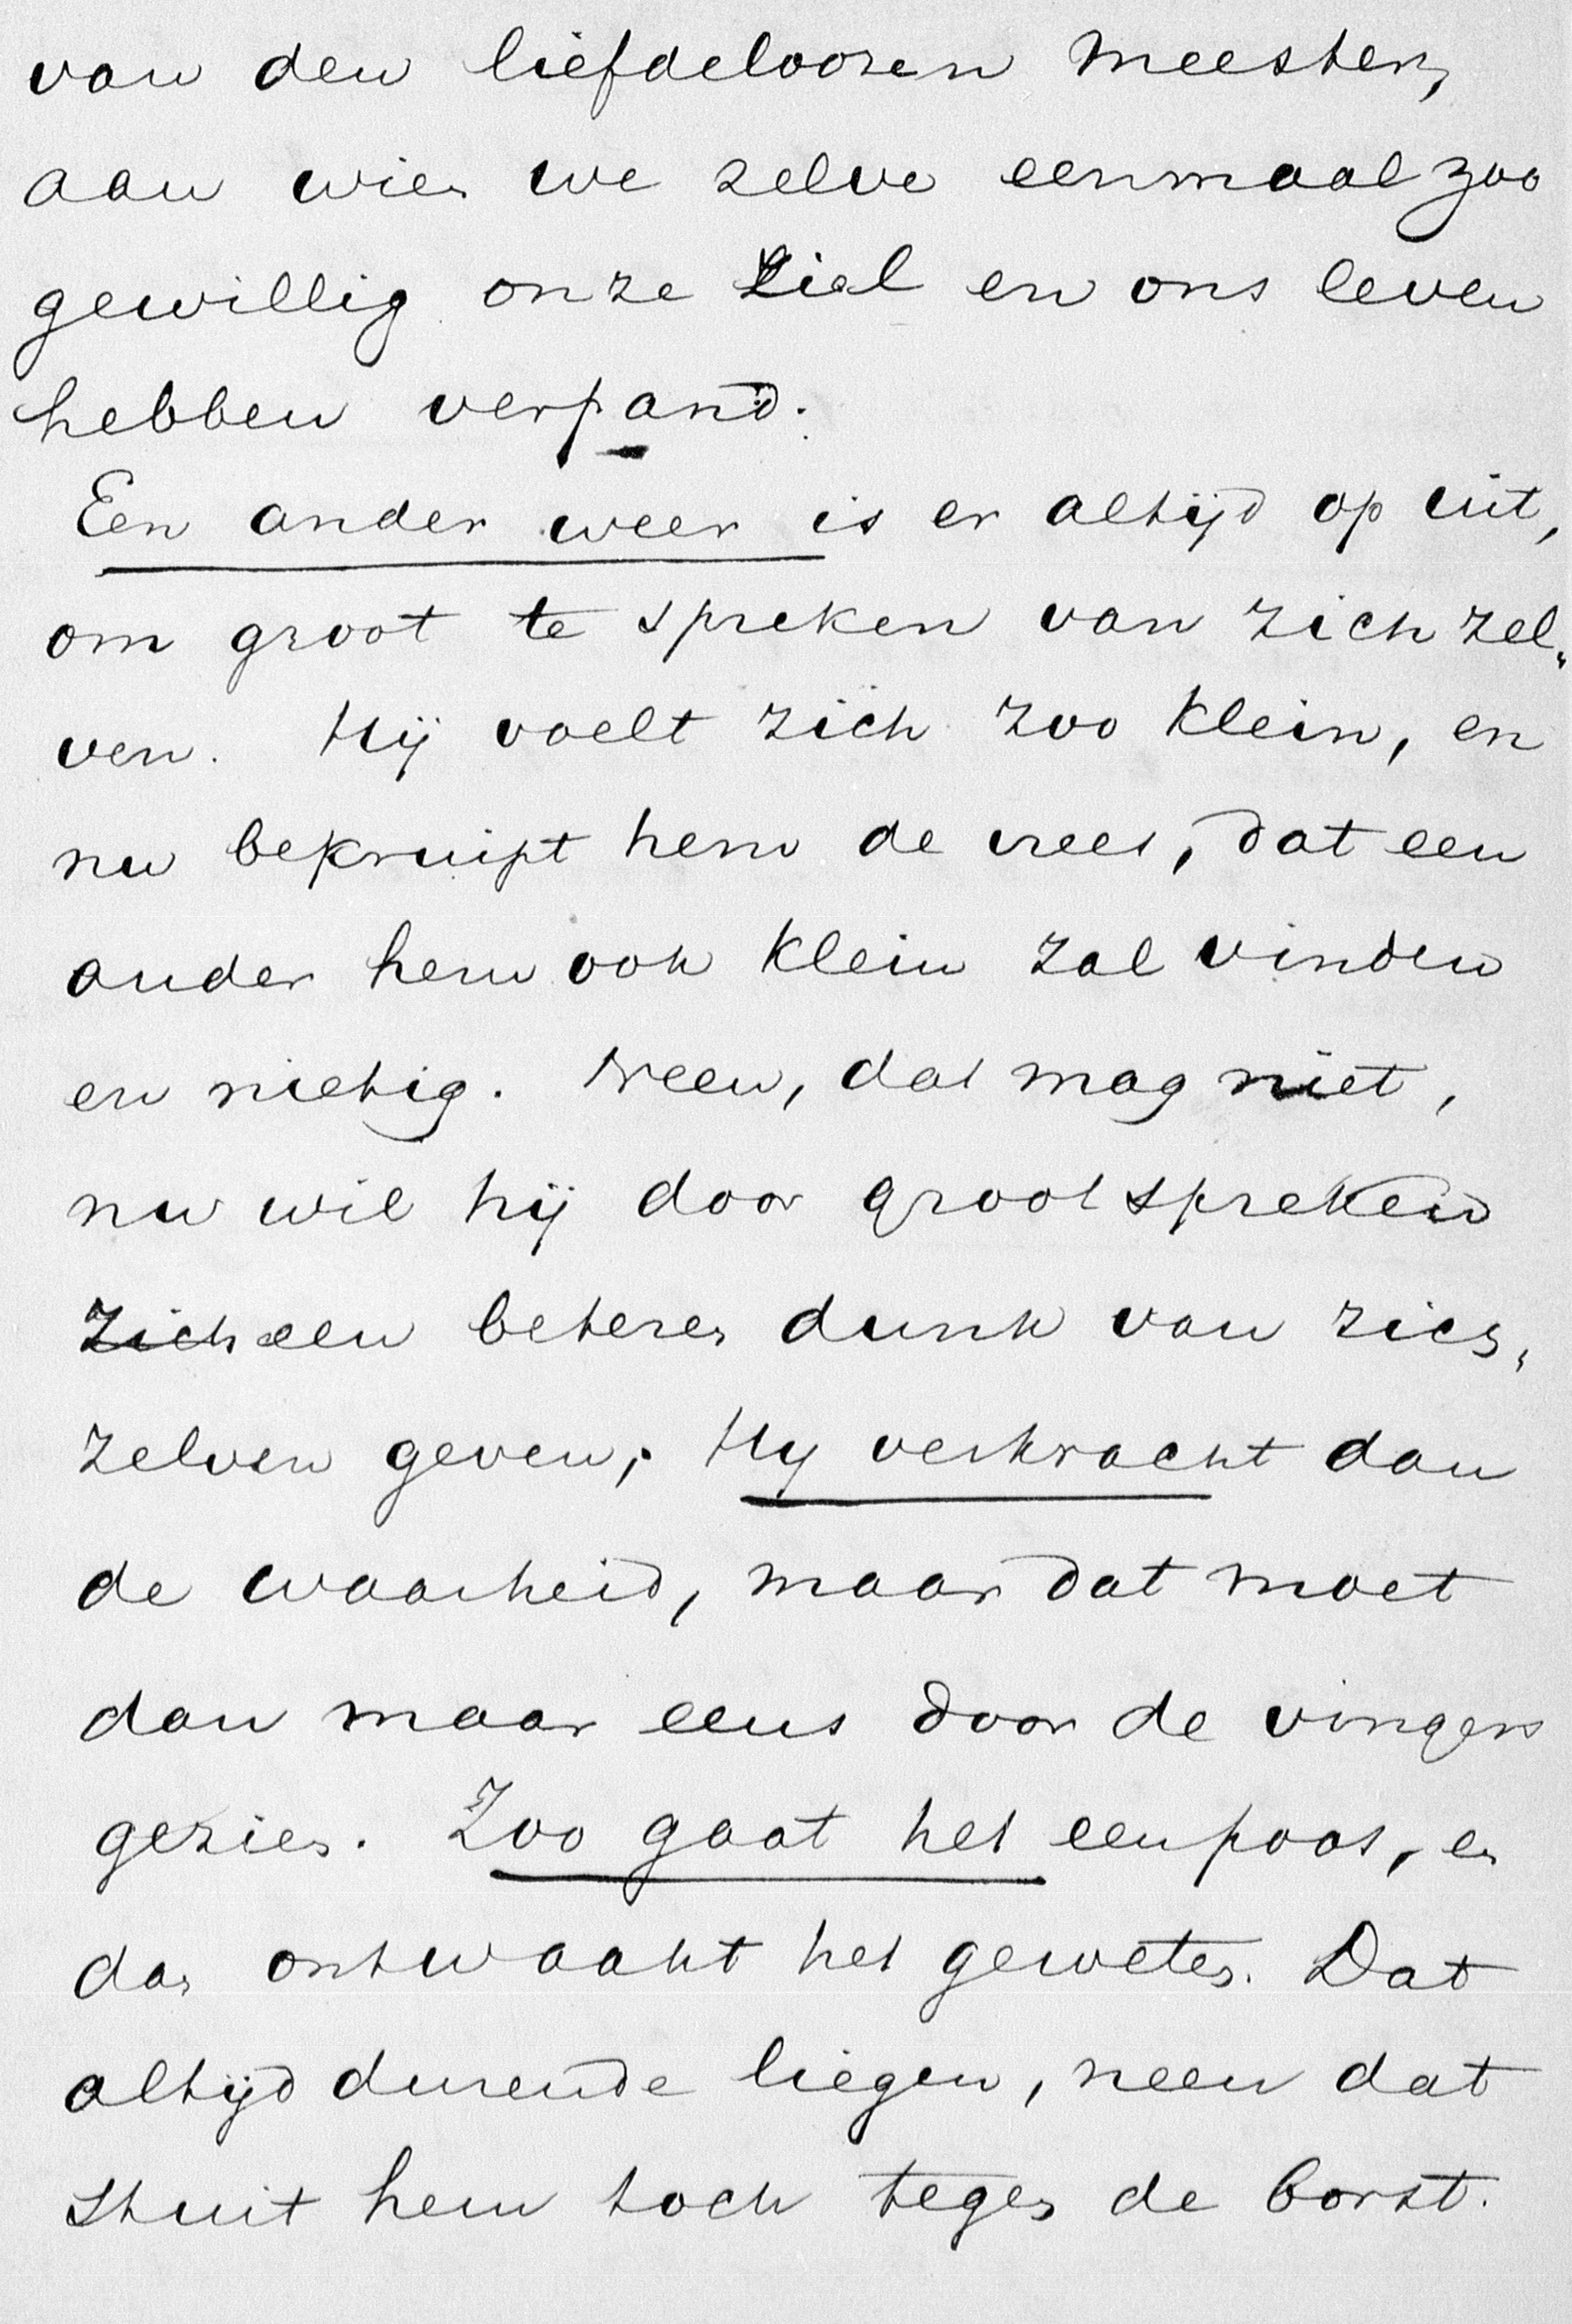 van den liefdeloozen meester,
aan wien we zelve eenmaal zoo
gewillig onze ziel en ons leven
hebben verpand.
Een ander weer is er altijd op uit,
om groot te spreken van zich zel„
ven. Hij voelt zich zoo klein, en
nu bekruipt hem de vrees, dat een
ander hem ook klein zal vinden
en nietig. Neen, dat mag niet,
nu wil hij door grootspreken
zich een beteren dunk van zich„
zelven geven; Hij verkracht dan
de waarheid, maar dat moet
dan maar eens door de vingers
gezien. Zoo gaat het een poos, en
dan ontwaakt het geweten. Dat
altijd durende liegen, neen dat
stuit hem toch tegen de borst.